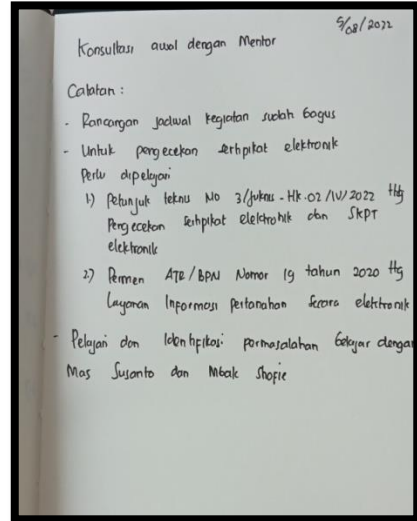 5/08/2022
Konsultasi awal dengan Mentor
Catatan :
- Rancangan jadwal kegiatan sudah bagus
- Untuk pengecekan sertipikat elektronik
Perlu dipelajari
1) Petunjuk teknis No 3/Juknis-HK.02/IV/2022 ttg
Pengecekan sertipikat elektronik dan SKPT
elektronik
2) Permen ATR/BPN Nomor 19 tahun 2020 ttg
Layanan Informasi pertanahan secara elektronik
- Pelajari dan Identifikasi permasalahan belajar dengan
Mas Susanto dan Mbak Shofie